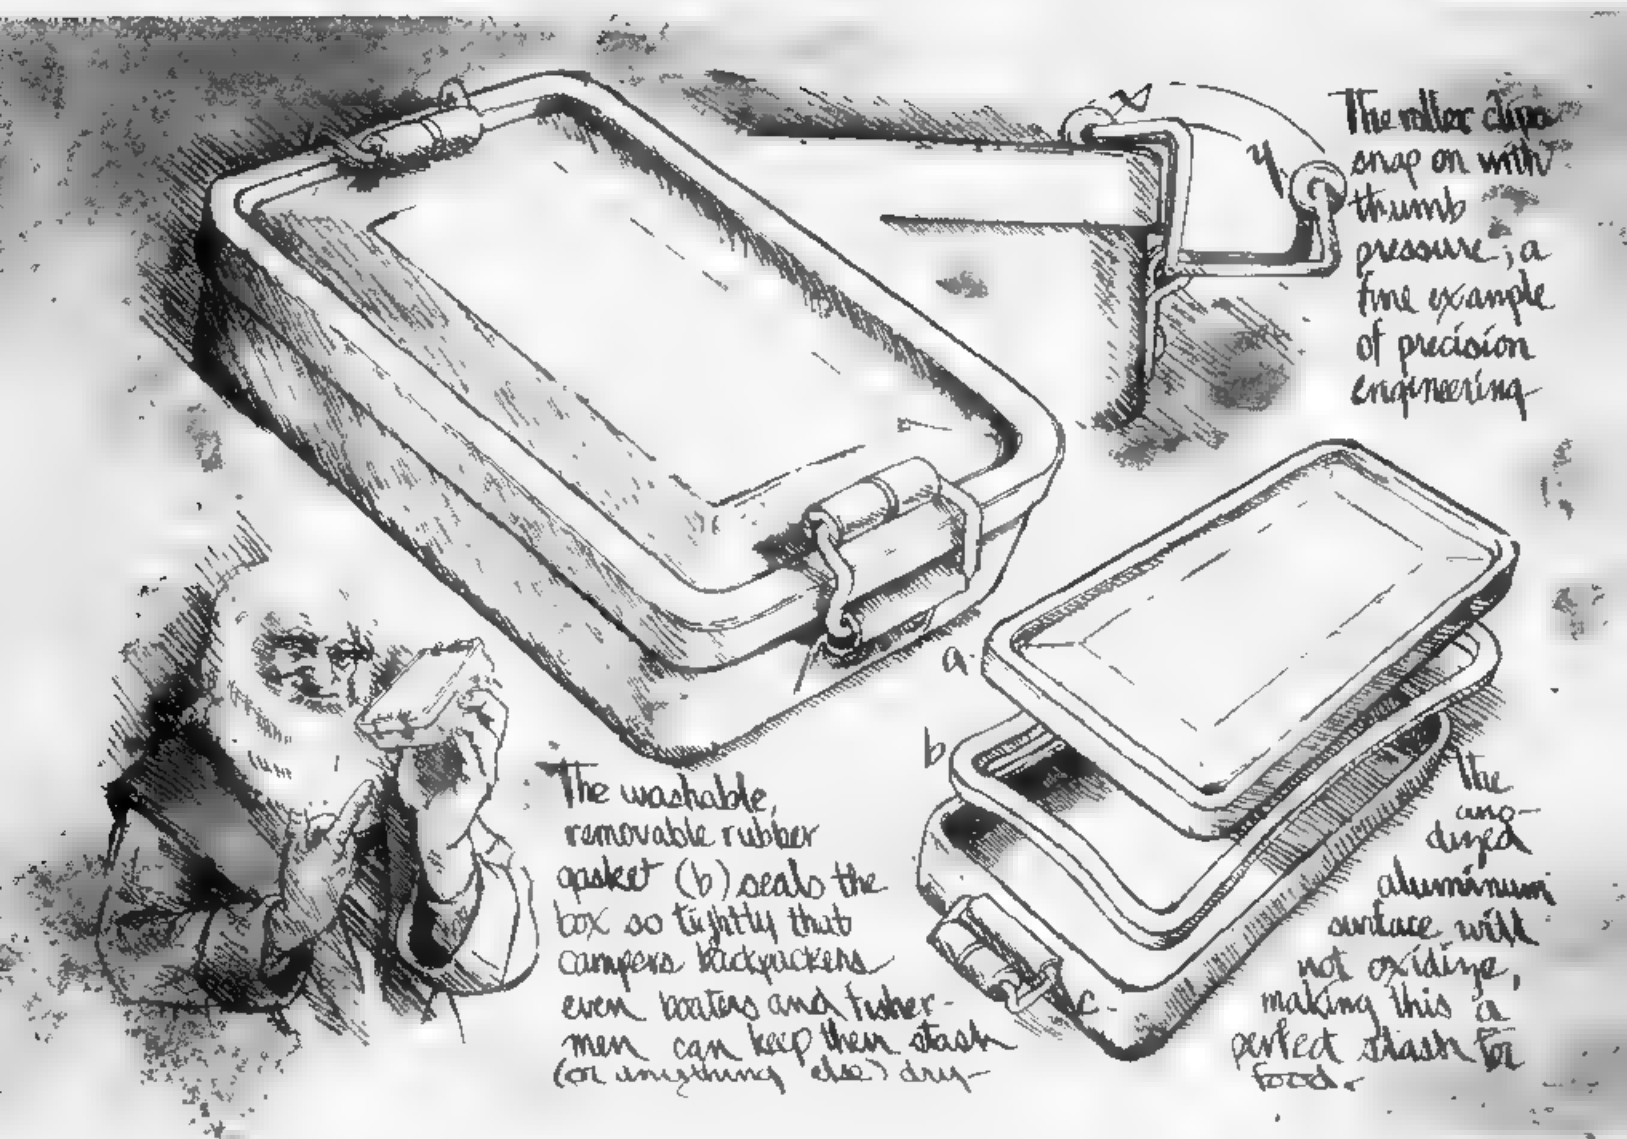 The roller clips
snap on with
thumb
pressure; a
fine example
of precision
engineering
x
y
a.
b
c.
The washable,
removable rubber
gasket (b) seals the
box so tightly that
campers backpackers
even boaters and fisher-
men can keep their stash
(or anything else) dry
The
ano-
dized
aluminum
surface will
not oxidize,
making this a
perfect stash for
food.